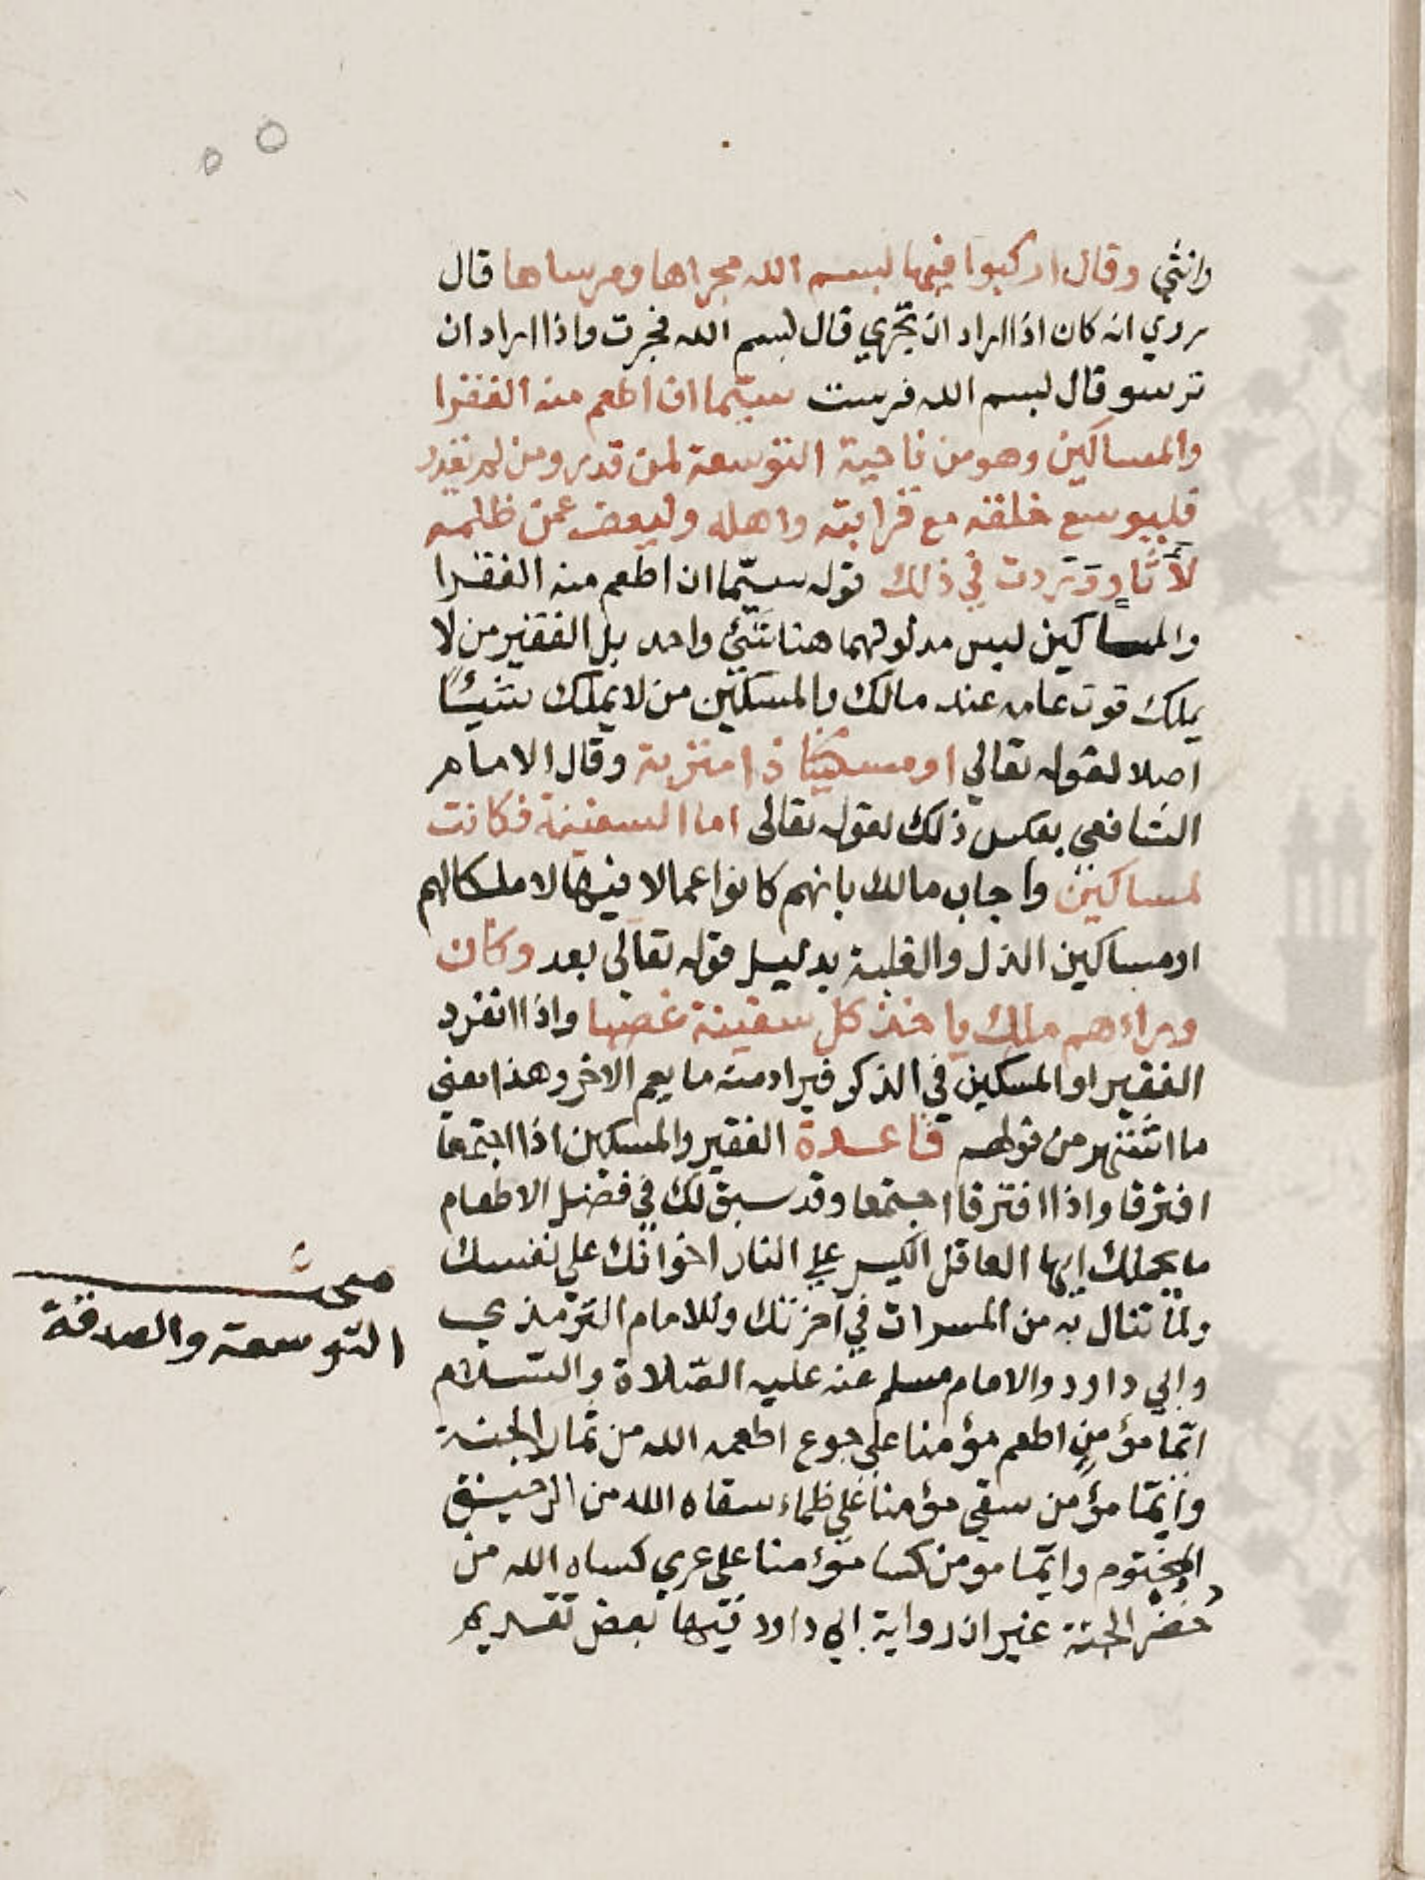 وانثي وقال اركبوا فيها بسم الله مجراها ومرساها قال
روي انه كان اذا اراد ان تجري قال بسم الله فجرت واذا اراد ان
ترسو قال بسم الله فرست سيّما ان اطعم منه الفقرا
والمساكين وهو من ناحية التوسعة لمن قدر ومن لم يقدر
فليوسع خلقه مع قرابته واهله وليعف عمن ظلمه
لآثار وردت في ذلك قوله سيّما ان اطعم منه الفقرا
والمساكين ليس مدلولهما هنا شئ واحد بل الفقير من لا
يملك قوت عامه عند مالك والمسكين من لا يملك شيئًا
اصلا لقوله تعالي او مسكينا ذا متربة وقال الامام
الشافعي بعكس ذلك لقوله تعالى اما السفينة فكانت
لمساكين واجاب مالك بانهم كانوا عمالا فيها لا ملكا لهم
او مساكين الذل والغلبة بدليل قوله تعالى بعد وكان
وراءهم ملك ياخذ كل سفينة غصبا واذا انفرد
الفقير او المسكين في الذكر فيراد منه ما يعم الاخر وهذا معنى
ما اشتهر من قولهم قاعدة الفقير والمسكين اذا اجتمعا
افترقا واذا افترقا اجتمعا وقد سبق لك في فضل الاطعام
ما يحملك ايها العاقل الكيس علي ايثار اخوانك علي نفسك
ولما تنال به من المسرات في آخرتك وللامام الترمذي
وابي داود والامام مسلم عنه عليه الصّلاة والسّلام
ايّما مؤمن اطعم مؤمنا علي جوع اطعمه الله من ثمار الجنة
وايّما مؤمن سقي مؤمنا علي ظماء سقاه الله من الرحيق
المختوم وايّما مومن كسا مؤمنا علي عري كساه الله من
خضر الجنة غير ان رواية ابي داود فيها بعض تقديم
التوسعة والصدقة